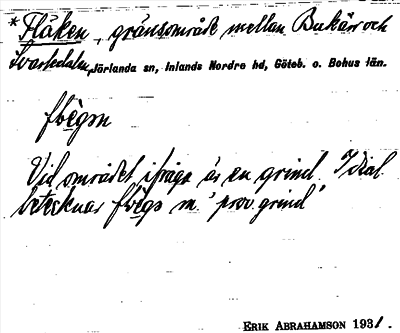 *Fläken, gränsområde mellan Bukärr och
Svartedalen, Jörlanda sn, Inlands Nordre hd, Göteb. o. Bohus län.
Vid området ifråga är en grind. I dial.
betecknar m. "prov. grind"
ERIK ABRAHAMSON 1931.